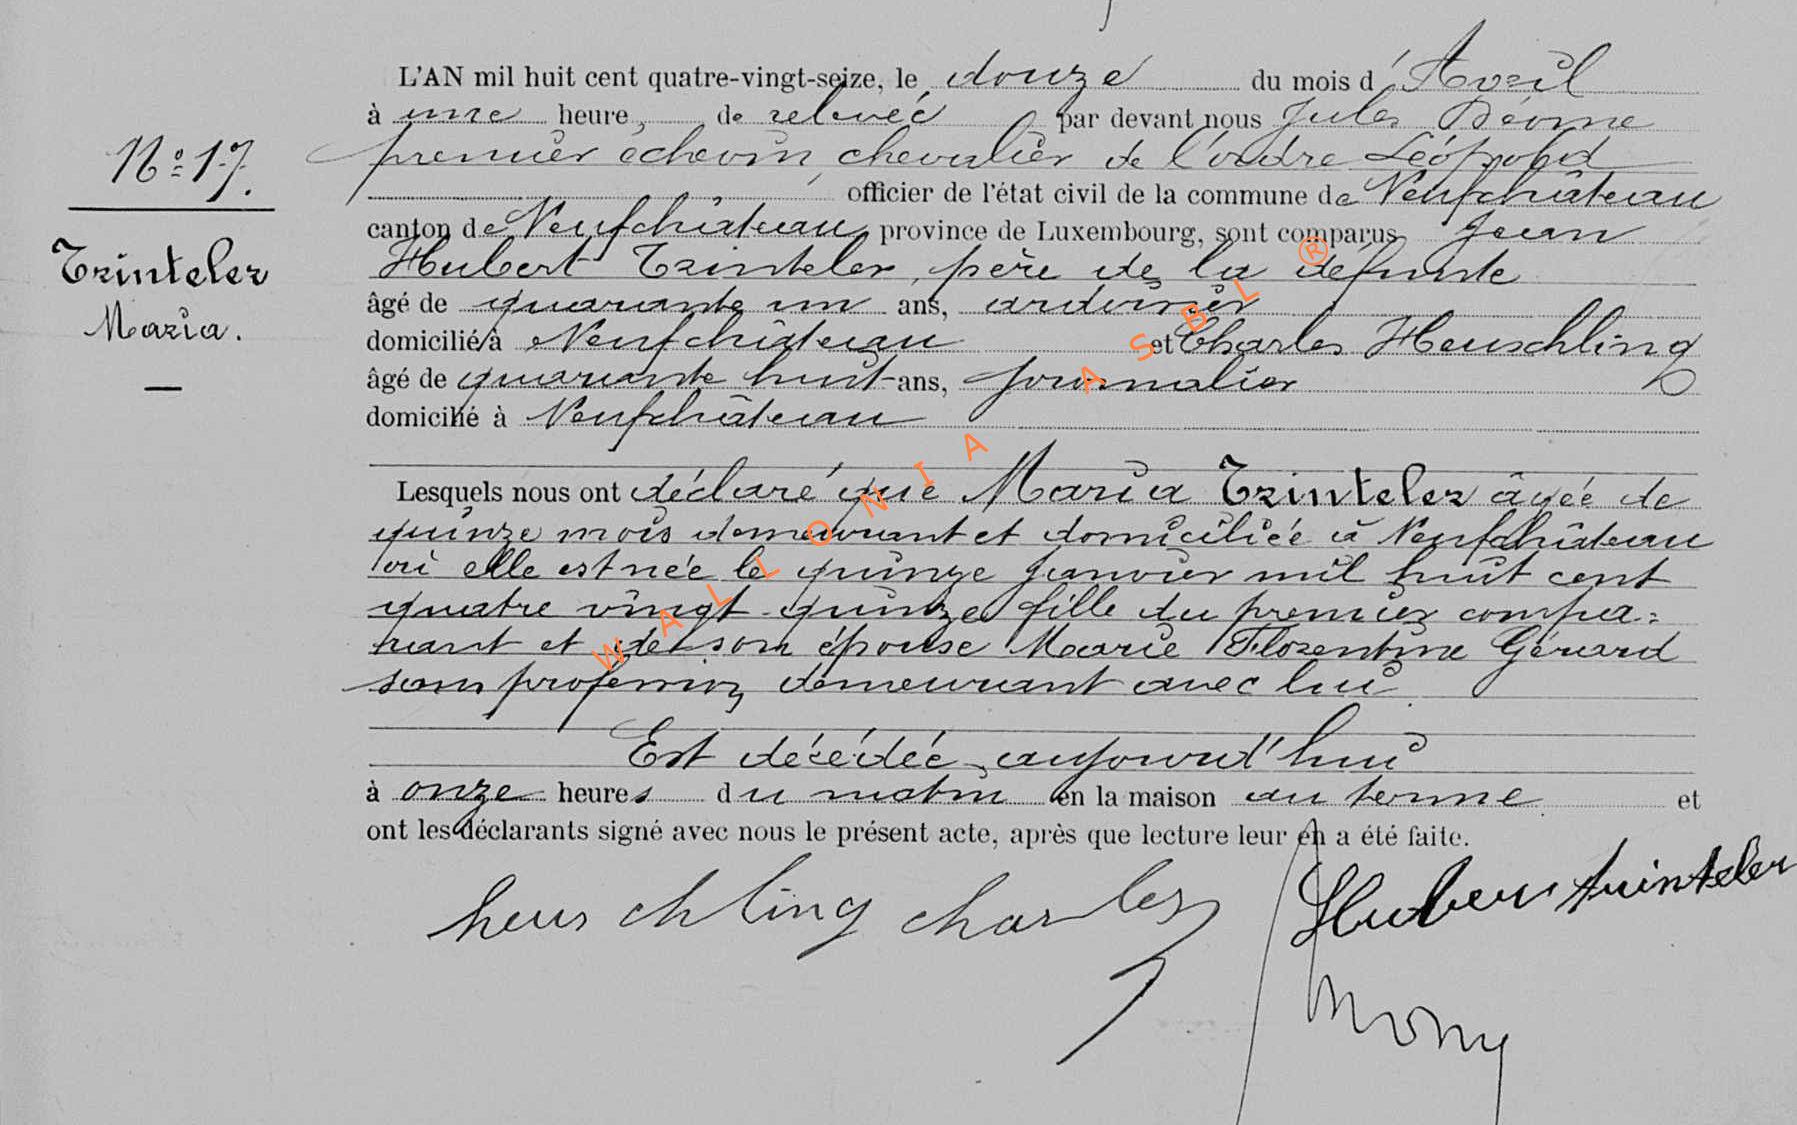 L'AN mil huit cent quatre-vingt-seize, le douze du mois d'Avril
à une heure, de relevée par devant nous Jules
premier échevin, chevalier de l'ordre Léopold
officier de l'état civil de la commune de Neufchâteau
N° 17.
canton de Neufchâteau, province de Luxembourg, sont comparus Jean
Trinteler
Hubert Trinteler, père de la défunte
âgé de quarante un ans, ardoisier
Maria.
domicilié à Neufchâteau et Charles Heuschling
âgé de quarante huit ans, journalier
domicilié à Neufchâteau
Lesquels nous ont déclaré que Maria Trinteler âgée de
quinze mois demeurant et domiciliée à Neufchâteau
où elle est née le quinze Janvier mil huit cent
quatre vingt quinze fille du premier compa=
rant et de son épouse Marie Florentine Gérard
sans profession demeurant avec lui
Est décédée aujourd'hui
à onze heures du matin en la maison au terme et
ont les déclarants signé avec nous le présent acte, après que lecture leur en a été faite.
heuschling charles
Hubert trinteler
WALLONIA ASBL ®